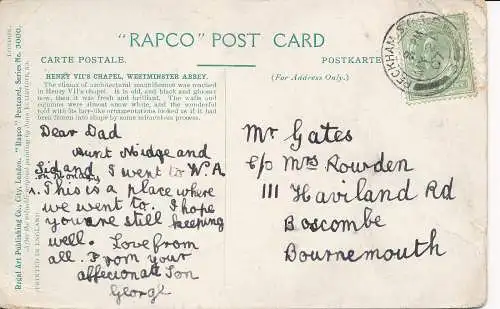 "RAPCO" POST CARD
CARTE POSTALE.
POSTKARTE
HENRY VII'S CHAPEL, WESTMINSTER ABBEY.
(For Address Only.)
The climax of architectural magnificence was reached
in Henry VII's chapel. It is old, and black and gloomy
now, then it was fresh and brilliant. The walls and
columns were almost snow white, and the wonderful
roof with its harp-like ornamentations looked as if it had
been thrown into shape by some mysterious process.
Dear Dad
Aunt Midge and
Sid and I went to W.A
on monday
. This is a place where
we went to. I hope
you are still keeping
well. Love from
all. From your
affecionate Son
George
Mr Gates
c/o Mrs Rowden
111 Haviland Rd
Boscombe
Bournemouth
PECKHAM S.O.
Regal Art Publishing Co., City, London. "Rapco" Postcard, Series No. 3000.
PRINTED IN ENGLAND